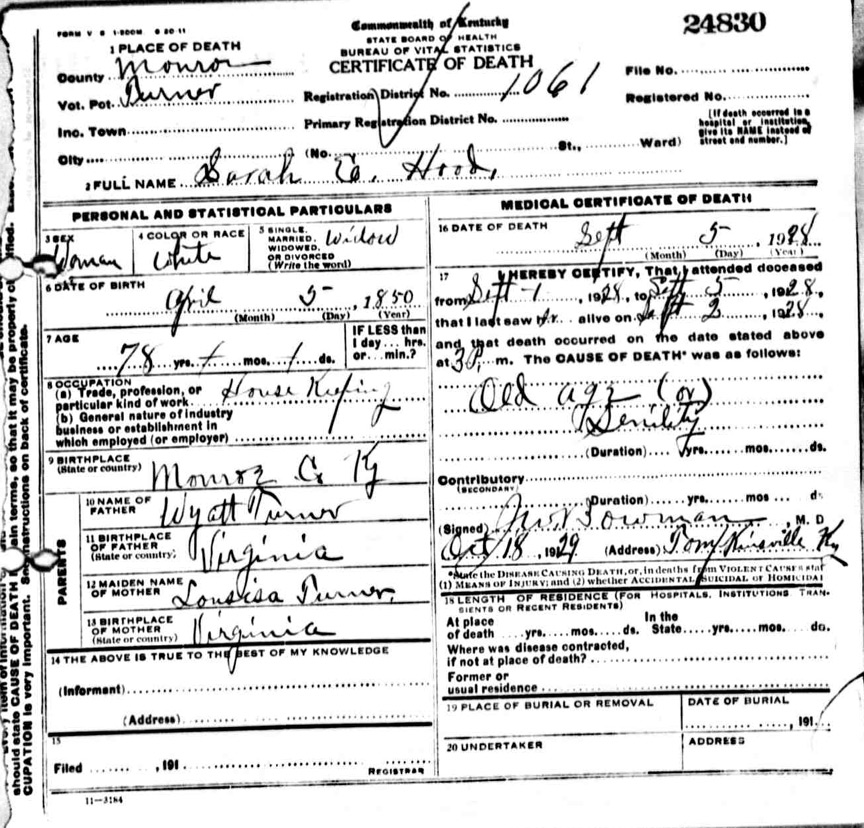 FORM V S 1-200M 8 20 11
Commonwealth of Kentucky
STATE BOARD OF HEALTH
BUREAU OF VITAL STATISTICS
CERTIFICATE OF DEATH
24830
1 PLACE OF DEATH
County Monroe
Vot. Pct. Turner
Inc. Town
City
Registration District No. 1061
Primary Registration District No.
(No. St., Ward)
File No.
Registered No.
[If death occurred in a
hospital or institution,
give its NAME instead of
street and number.]
2 FULL NAME Sarah E. Hood,
PERSONAL AND STATISTICAL PARTICULARS
3 SEX
Woman
4 COLOR OR RACE
White
5 SINGLE,
MARRIED,
WIDOWED,
OR DIVORCED
(Write the word)
Widow
6 DATE OF BIRTH
April 5, 1850
(Month) (Day) (Year)
7 AGE
78 yrs. mos. ds.
IF LESS than
1 day... hrs.
or... min.?
8 OCCUPATION
(a) Trade, profession, or
particular kind of work House Keeping
(b) General nature of industry
business or establishment in
which employed (or employer)
9 BIRTHPLACE
(State or country) Monroe Co Ky
PARENTS
10 NAME OF
FATHER Wyatt Turner
11 BIRTHPLACE
OF FATHER
(State or country) Virginia
12 MAIDEN NAME
OF MOTHER Lousisa Turner,
13 BIRTHPLACE
OF MOTHER
(State or country) Virginia
14 THE ABOVE IS TRUE TO THE BEST OF MY KNOWLEDGE
(Informant)
(Address)
15
Filed , 191
REGISTRAR
11-3184
MEDICAL CERTIFICATE OF DEATH
16 DATE OF DEATH
Sept 5, 1928
(Month) (Day) (Year)
17 I HEREBY CERTIFY, That I attended deceased
from Sept 1, 1928, to Sept 5, 1928,
that I last saw h alive on Sept 2, 1928,
and that death occurred on the date stated above
at 3 P. m. The CAUSE OF DEATH* was as follows:
Old age (or)
Senility
(Duration) yrs. mos. ds.
Contributory
(SECONDARY)
(Duration) yrs. mos ds
(Signed) Bowman, M. D
Oct 18, 1929 (Address) Tompkinsville Ky
*State the DISEASE CAUSING DEATH, or, in deaths from VIOLENT CAUSES stat
(1) MEANS OF INJURY; and (2) whether ACCIDENTAL, SUICIDAL or HOMICIDAL
18 LENGTH OF RESIDENCE (FOR HOSPITALS, INSTITUTIONS TRAN-
SIENTS OR RECENT RESIDENTS)
At place of death yrs. mos. ds. In the State yrs. mos. ds.
Where was disease contracted,
if not at place of death?
Former or
usual residence
19 PLACE OF BURIAL OR REMOVAL
DATE OF BURIAL
, 191
20 UNDERTAKER
ADDRESS
should state CAUSE OF DEATH in plain terms, so that it may be properly
CUPATION is very important. See instructions on back of certificate.